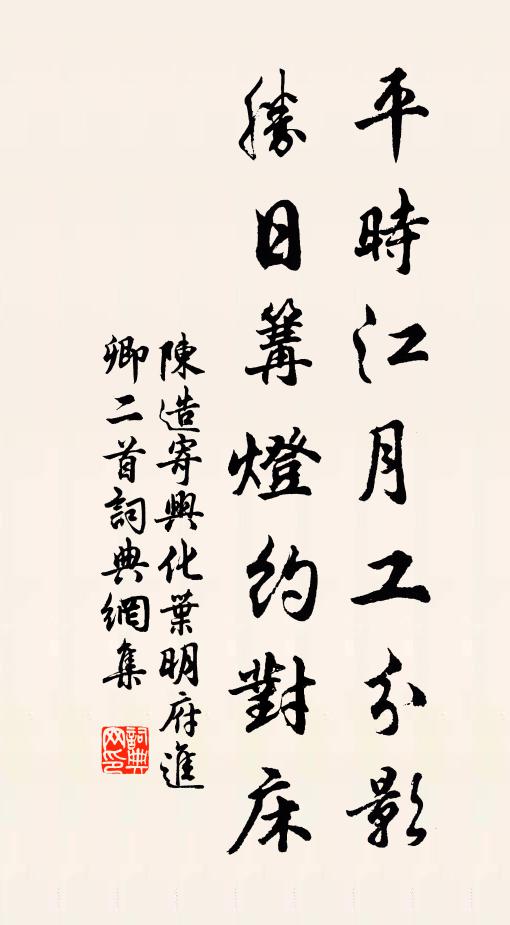 平時江月工分影
勝日篝燈約對床
陳造寄興化葉明府進
卿二首詞典網集
詞典
网印